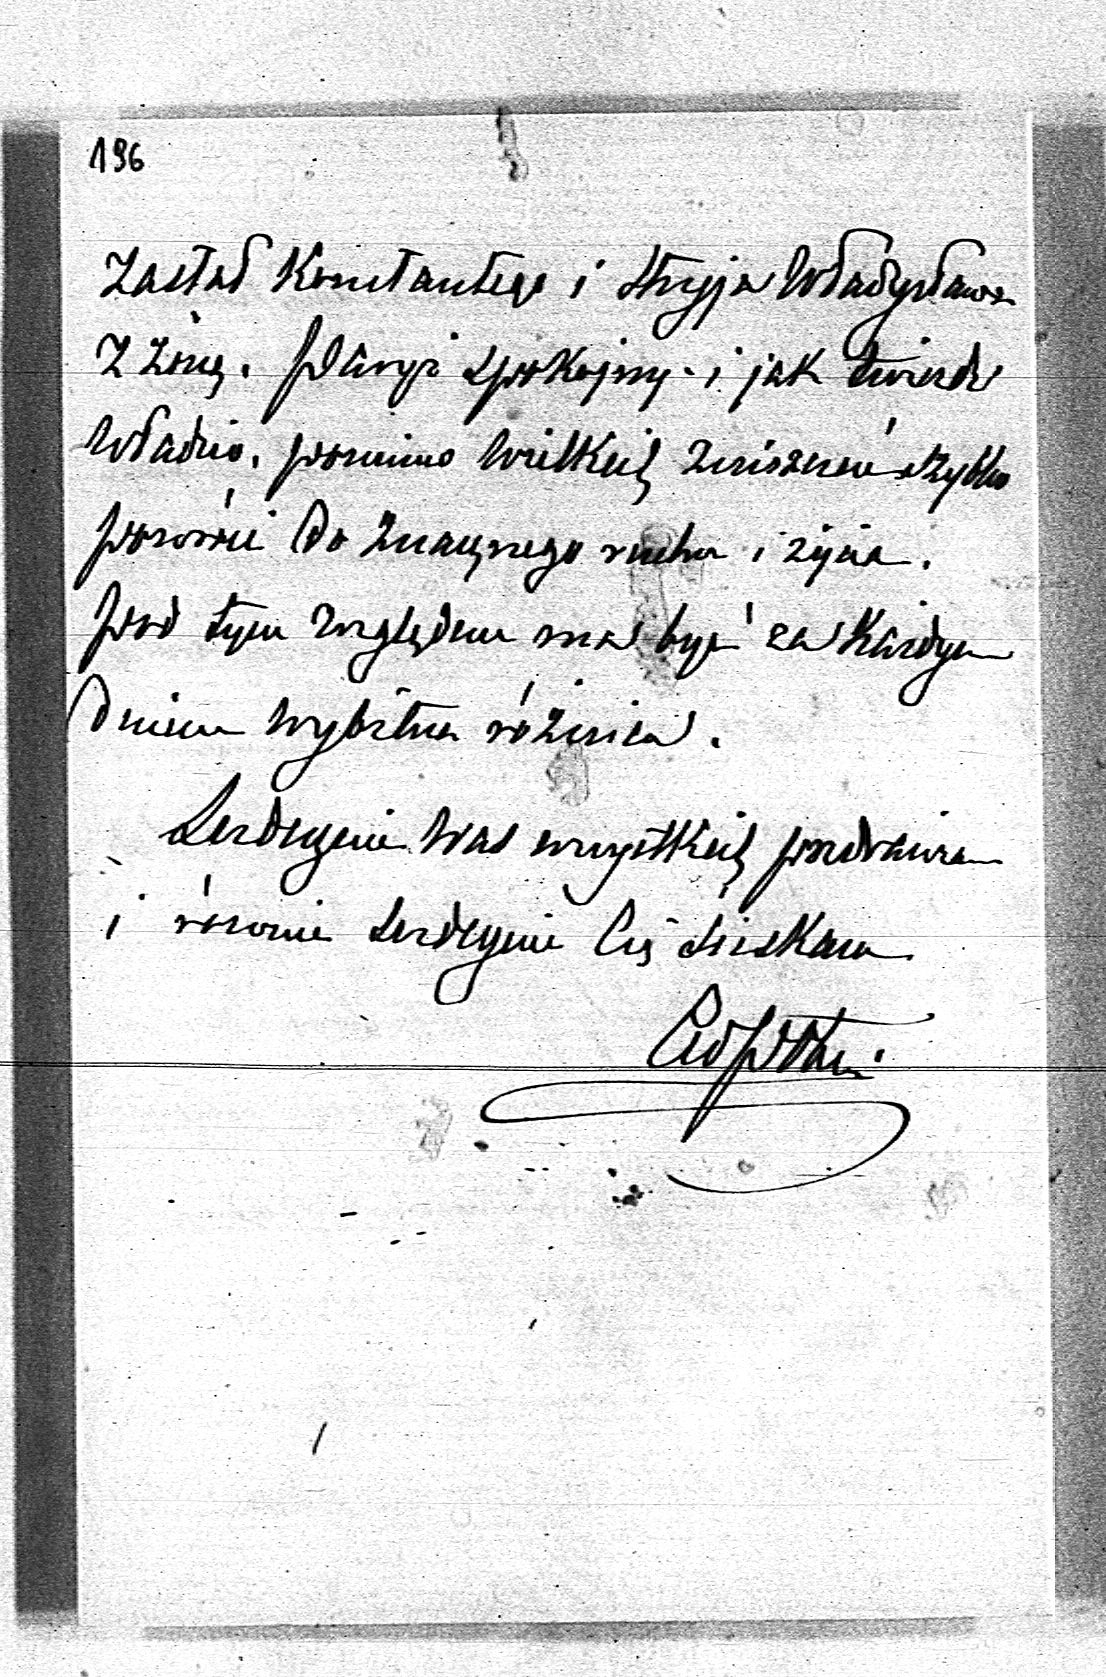 196
zastał Konstantego i stryja Władysława
z żoną. Paryż spokojny i jak twierdzi
Władzio, pomimo wielkich zniszczeń szybko
powróci do znacznego ruchu i życia.
Pod tym względem ma być za każdym
dniem wybitna różnica.
Serdecznie Was wszystkich pozdrawiam
i równie serdecznie Cię ściskam